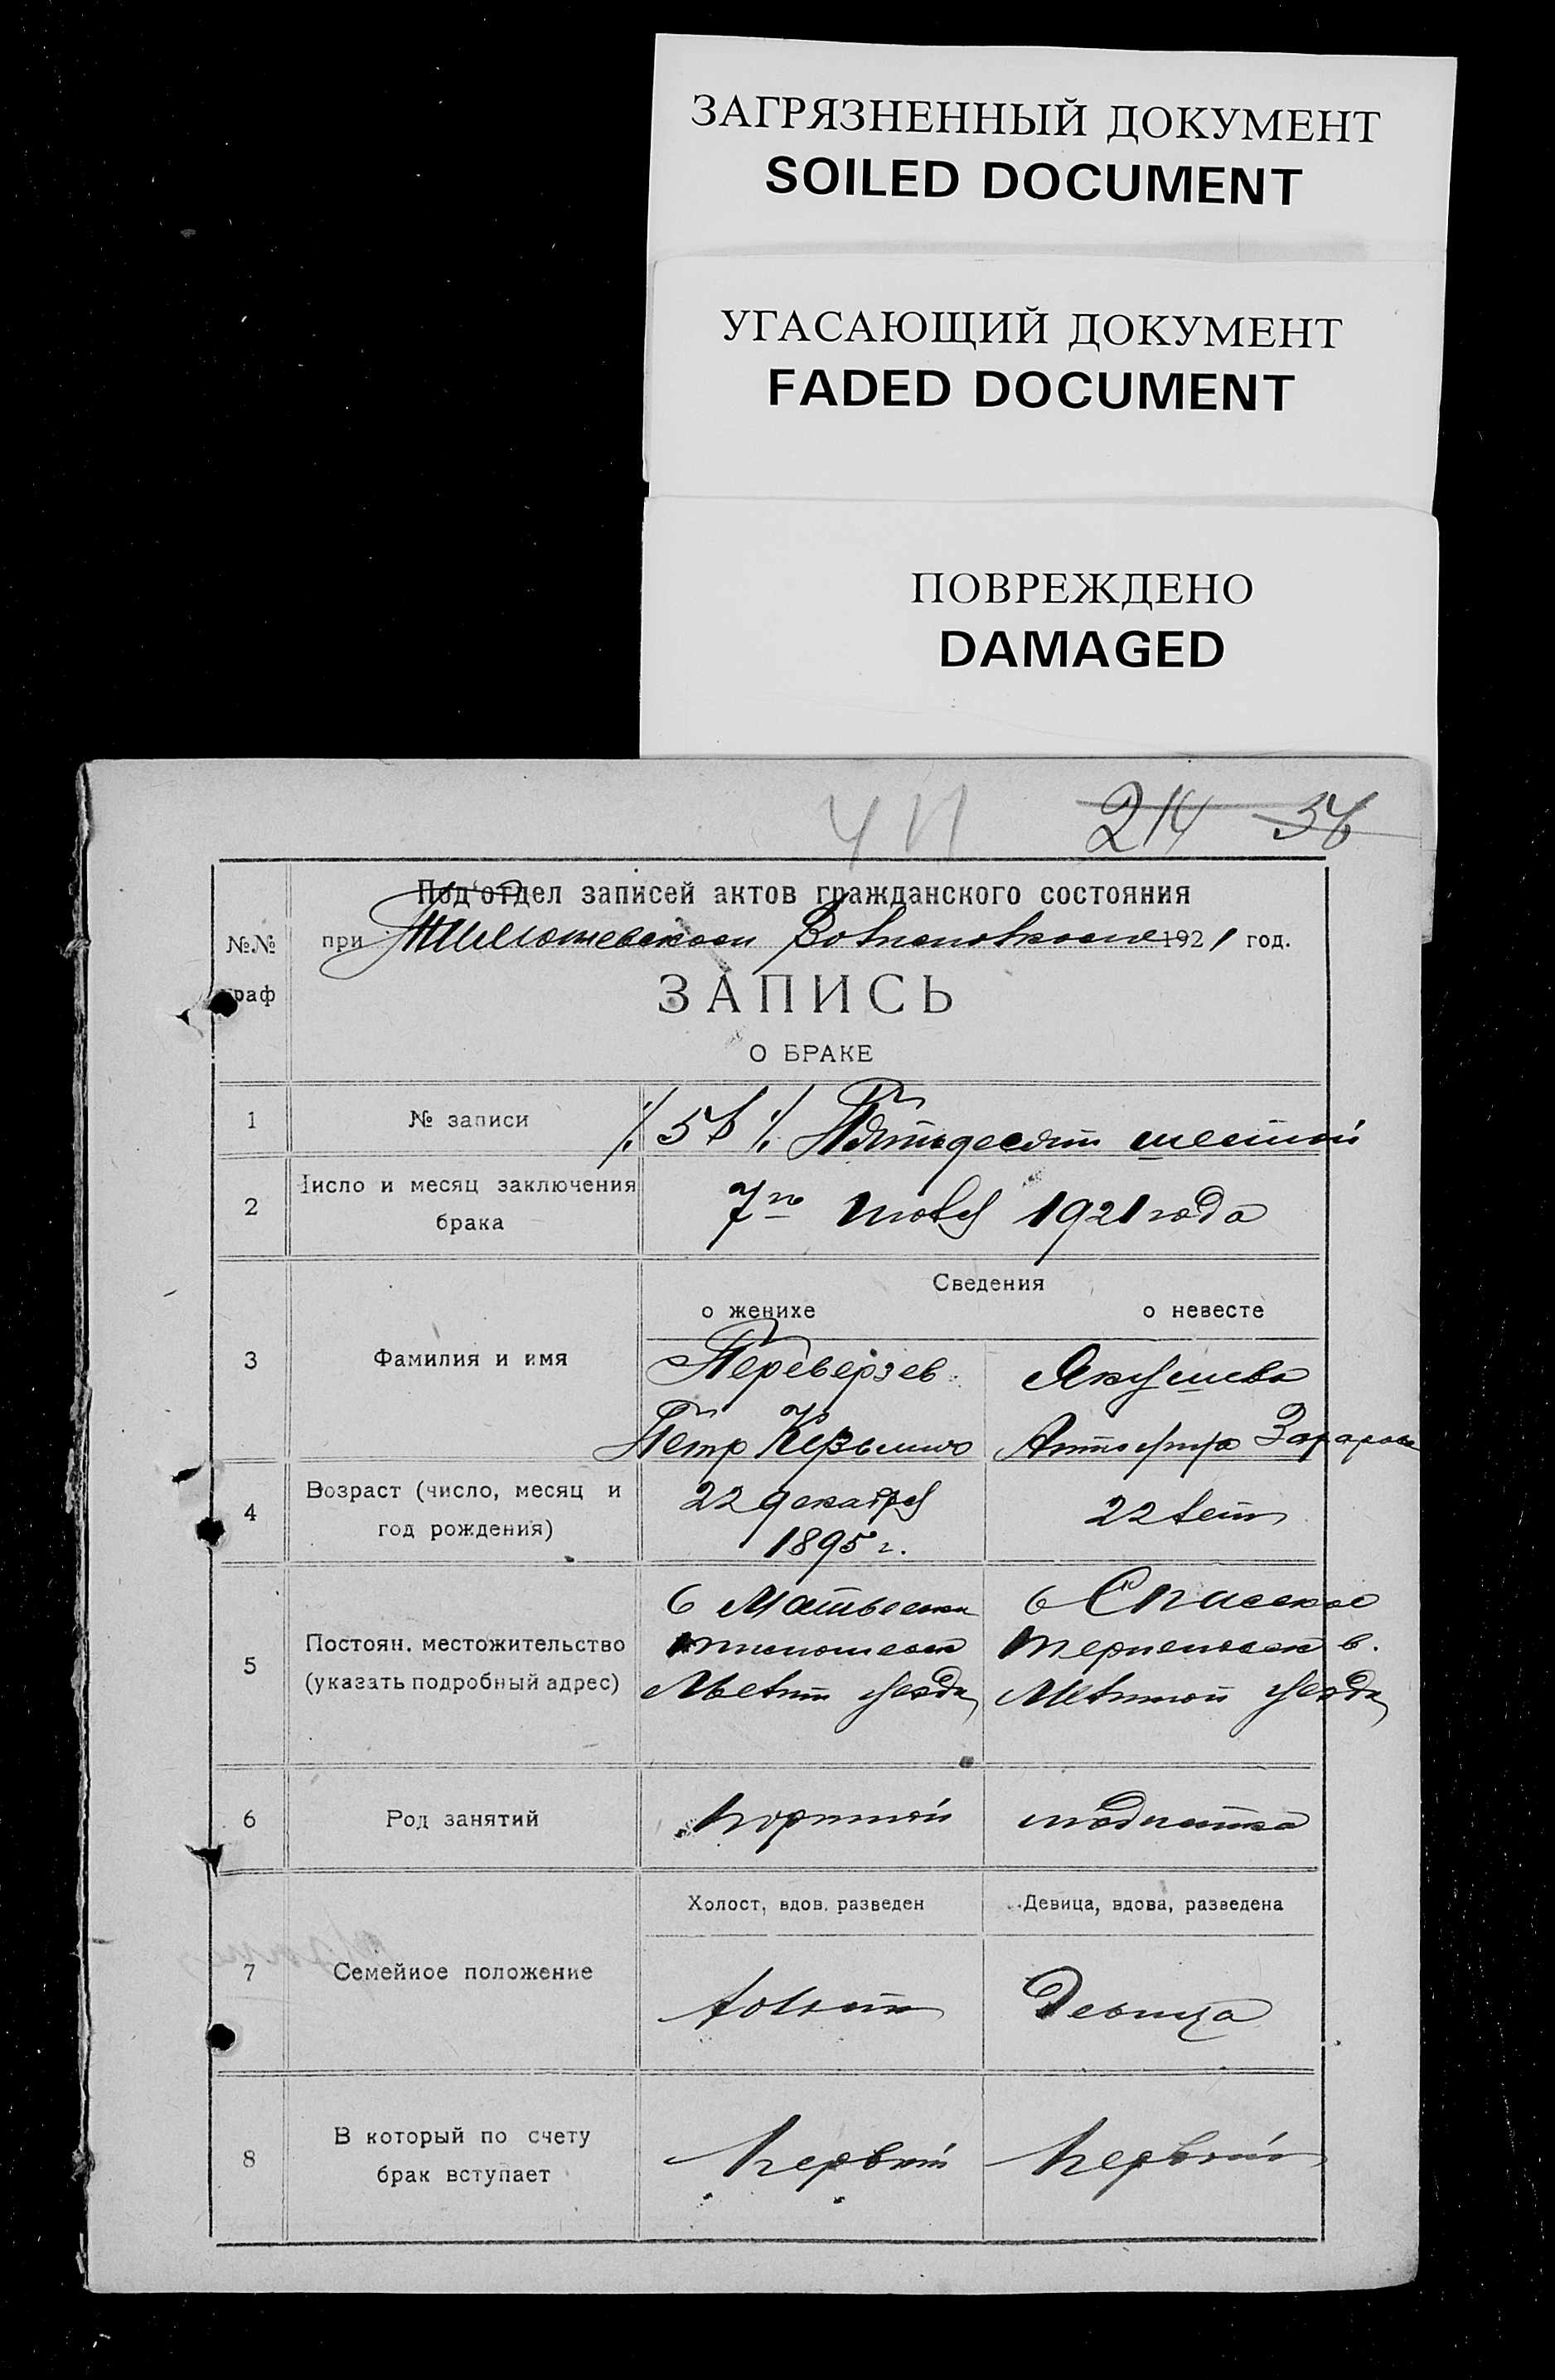 ЗАГРЯЗНЕННЫЙ ДОКУМЕНТ
SOILED DOCUMENT
УГАСАЮЩИЙ ДОКУМЕНТ
FADED DOCUMENT
ПОВРЕЖДЕНО
DAMAGED
214 56
Под'отдел записей актов гражданского состояния
№№ при 1921 год.
граф
ЗАПИСЬ
О БРАКЕ
1 № записи ./. 56 ./. Пятьдесят шестой
2 Число и месяц заключения брака
7го июля 1921 года
Сведения
о женихе о невесте
3 Фамилия и имя
Переверзев Якушева
Петр Кузьмич
4 Возраст (число, месяц и год рождения)
22 декабря 22 лет
1895 г.
5 Постоян. местожительство (указать подробный адрес)
с Спасское
Мелит уезда Мелитоп уезда
6 Род занятий портной модистка
Холост, вдов. разведен Девица, вдова, разведена
7 Семейное положение
холост Девица
8 В который по счету брак вступает
первый первый